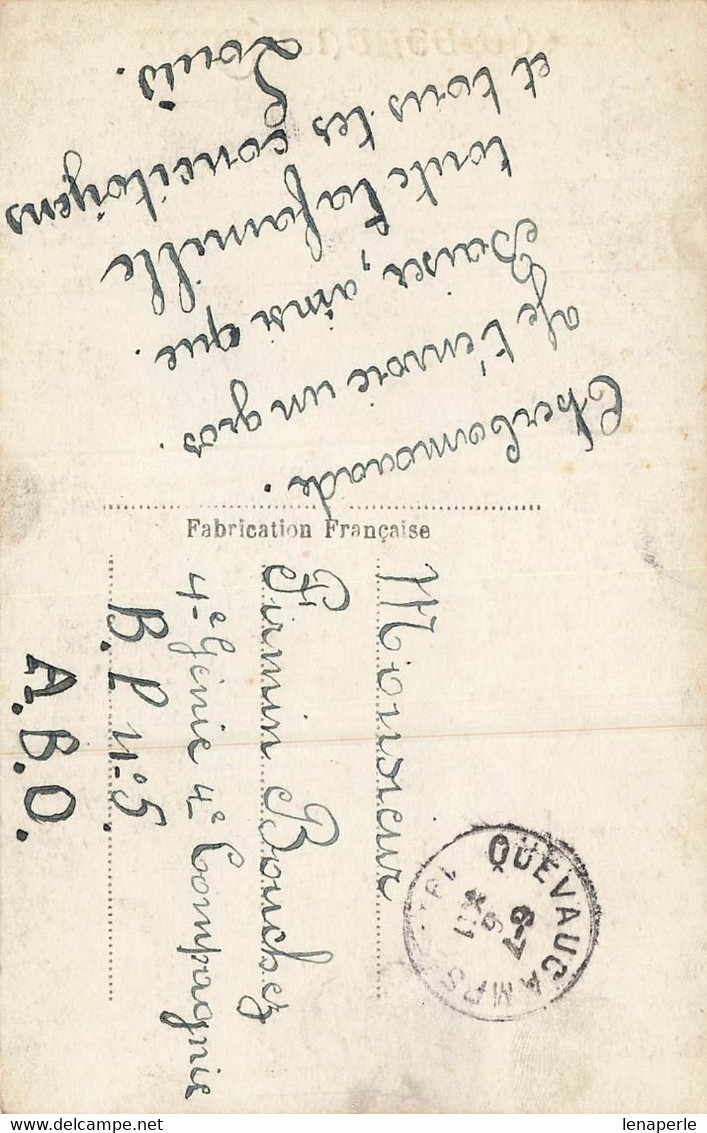 Cher camarade.
Je t'envoie un gros.
Baiser, ainsi que.
toute la famille
et tous les concitoyens
Louis.
Fabrication Française
Monsieur
Firmin Bouchez
4e Génie 4e Compagnie
B. P. n: 5
A.B.O.
QUÉVAUCAMPS
lenaperle www.delcampe.net